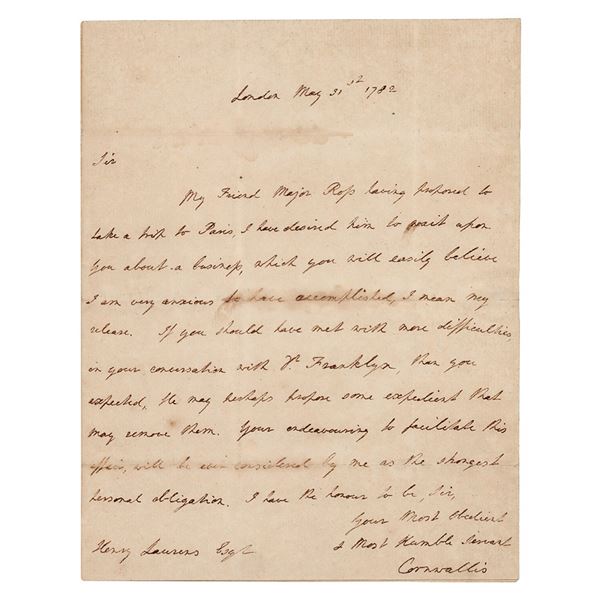 London May 31st 1782
Sir
My Friend Major Ross having proposed to
take a trip to Paris, I have desired him to wait upon
you about a business, which you will easily believe
I am very anxious to have accomplished, I mean my
release. If you should have met with more difficulties,
in your conversation with Dr. Franklyn, than you
expected, He may perhaps propose some expedient that
may remove them. Your endeavouring to facilitate this
affair, will be ever considered by me as the strongest
personal obligation. I have the honour to be, Sir,
Your Most Obedient
& Most Humble Servant
Henry Laurens Esqr
Cornwallis